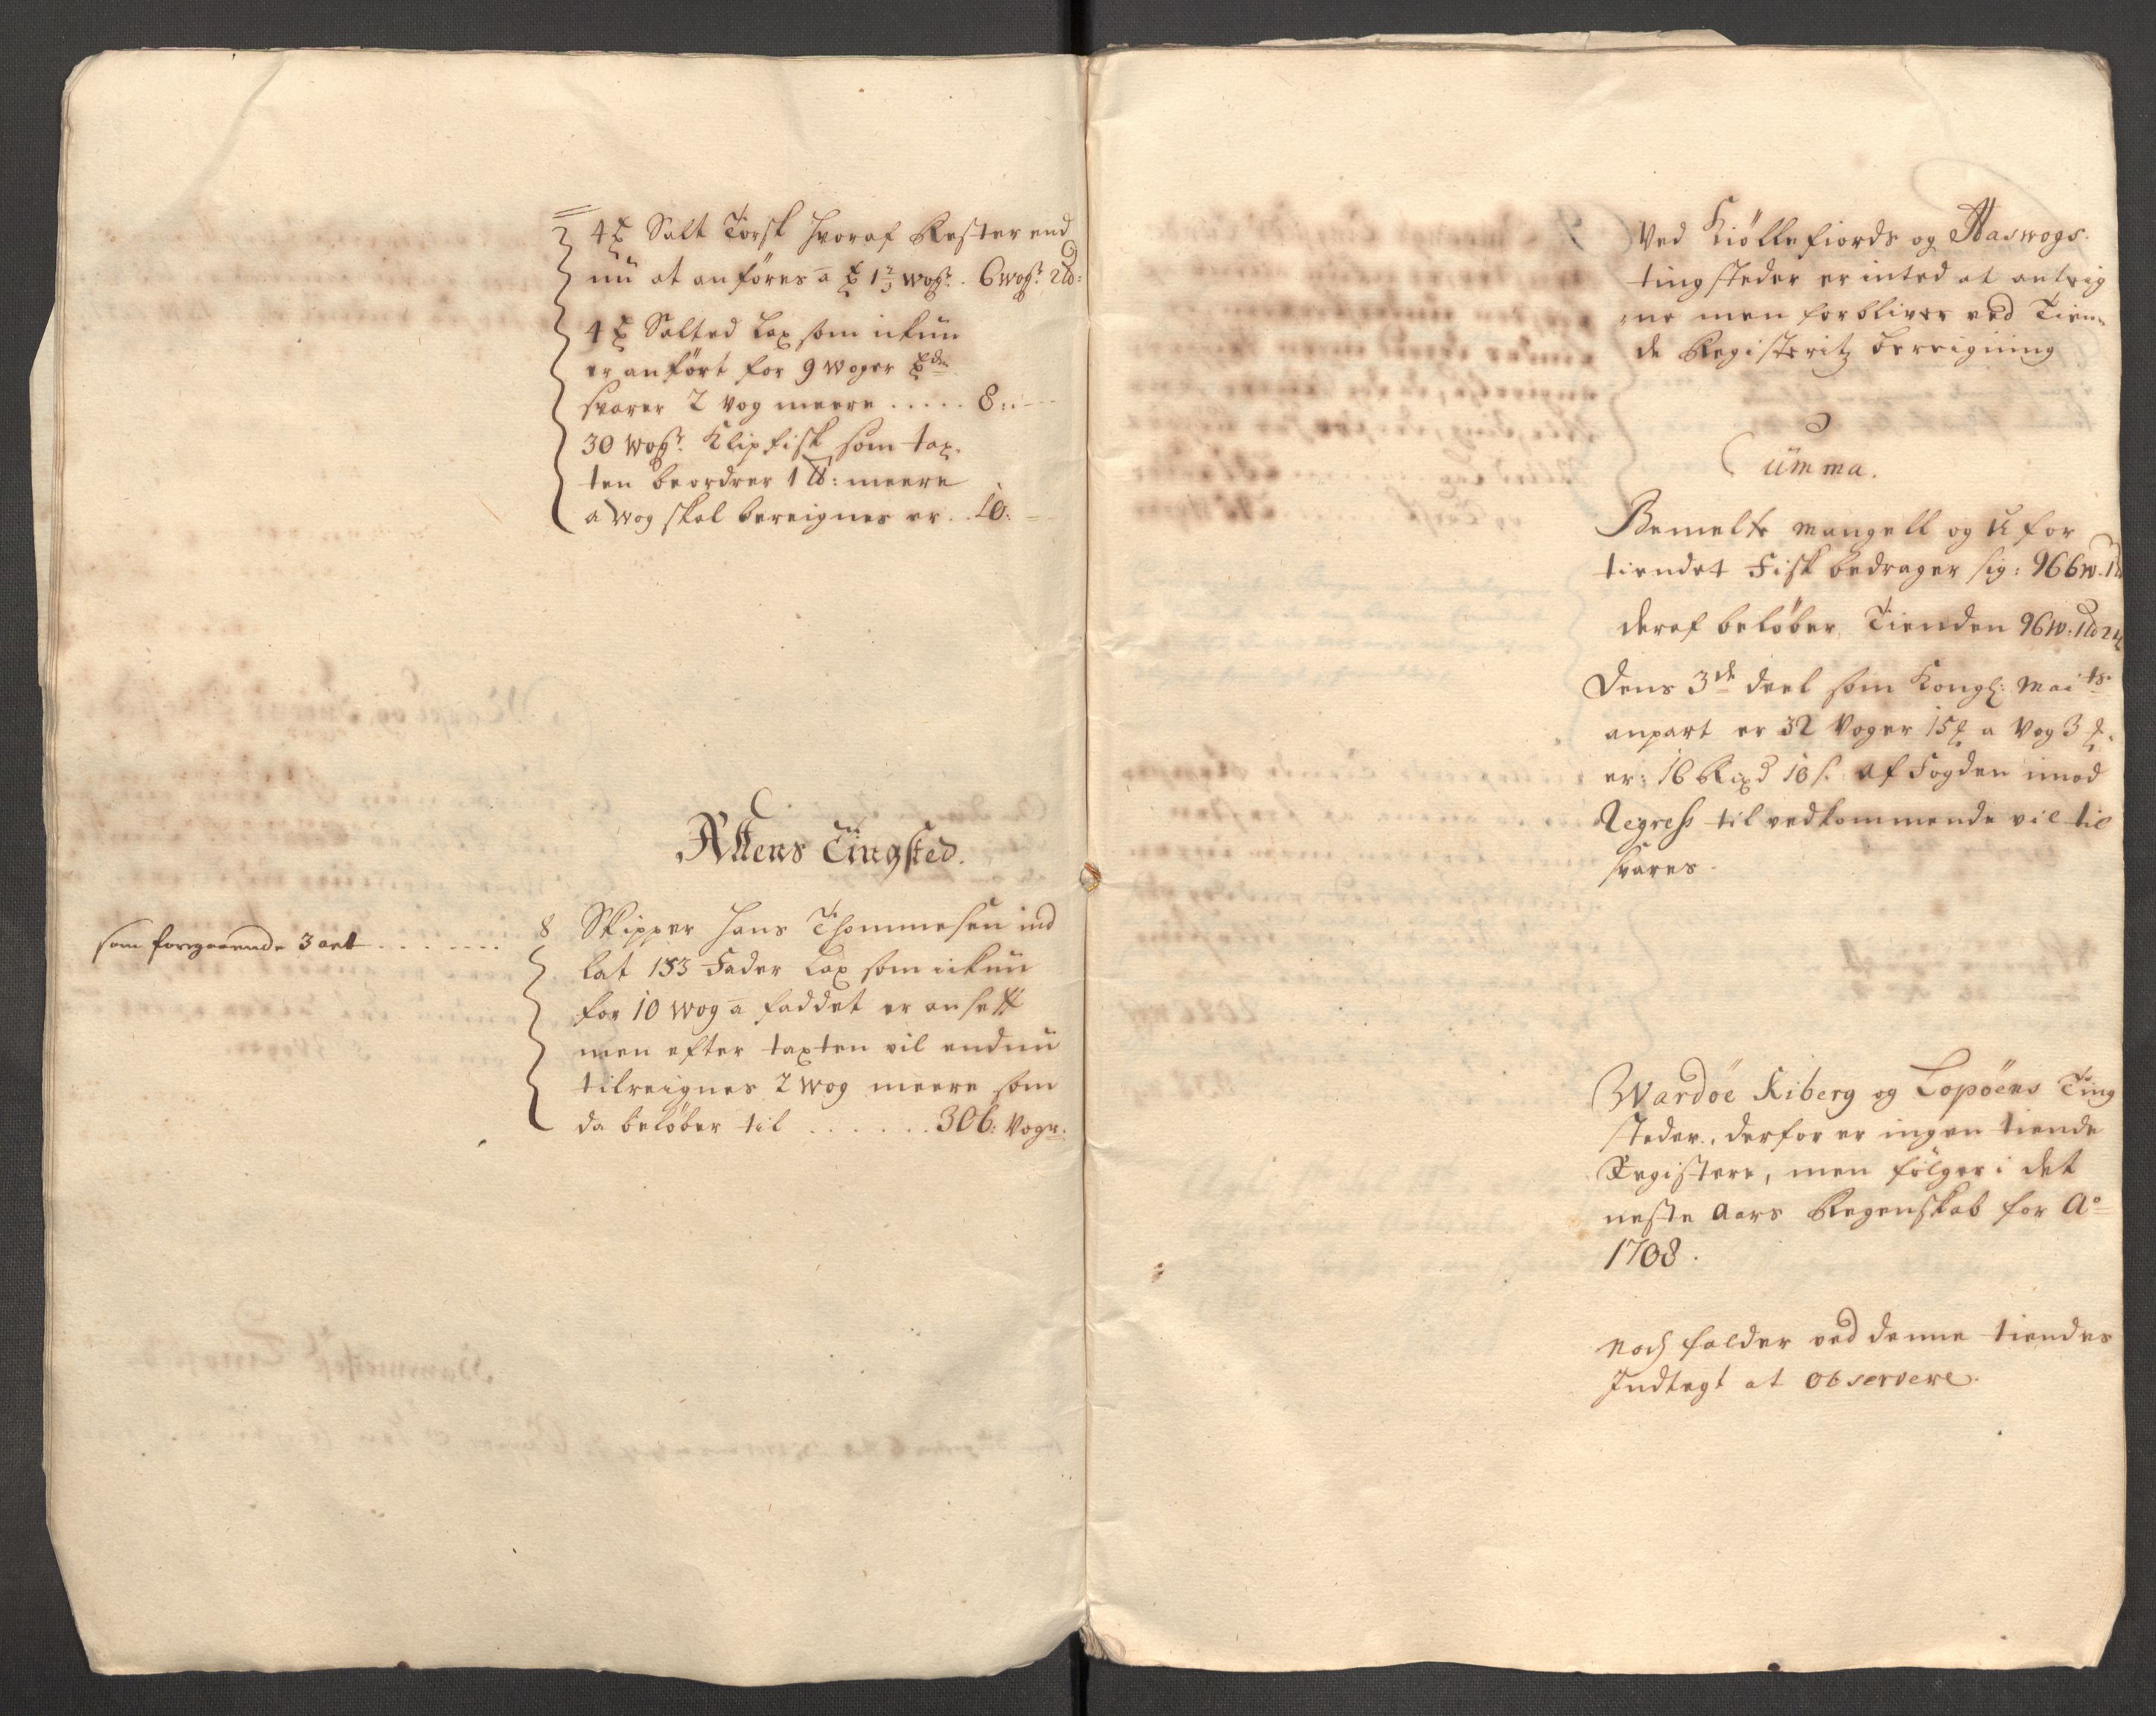 4 Salt Torsk hvoraf Rester end
nu at anføres a 1 2/3 wog: 6 wogr 2 d:
4 Salted Lax som ickun
er anført for 9 woger
svarer 2 vog meere ..... 8:
30 wogr Klipfisk som tax-
ten beordrer 1 d: meere
a wog skal bereignes er .. 10:
Altens Tingsted.
som forgaaende 3 art .......
8 Skipper Hans Thommesen ind
lat 153 Fader Lax som ickun
for 10 wog a faddet er ansett
men efter taxten vil endnu
tilreignes 2 wog meere som
da beløber til ...... 306: Vogr.
Ved Kiøllefiords og Maswogs
tingsteder er inted at anteig
ne men forbliver ved Tien-
de Registeritz berreigning
Summa.
Bemelte Mangell og U for
tiendet Fisk bedrager sig: 966 w. 1 d
deraf beløber Tienden 96 w: 1 d 24
Dens 3de deel som Kongl: Maits
anpart er 32 Voger 15 a Vog 3
er: 16 Rixd 10 s. af Fogden imod
Regress til vedkommende vil til
svares.
Wardøe Kiberg og Lopøens Ting
steder, derfor er ingen tiende
Registere, men følger i det
neste Aars Regenskab for Ao
1708.
Noch falder ved denne tiendes
Indtegt at observere.